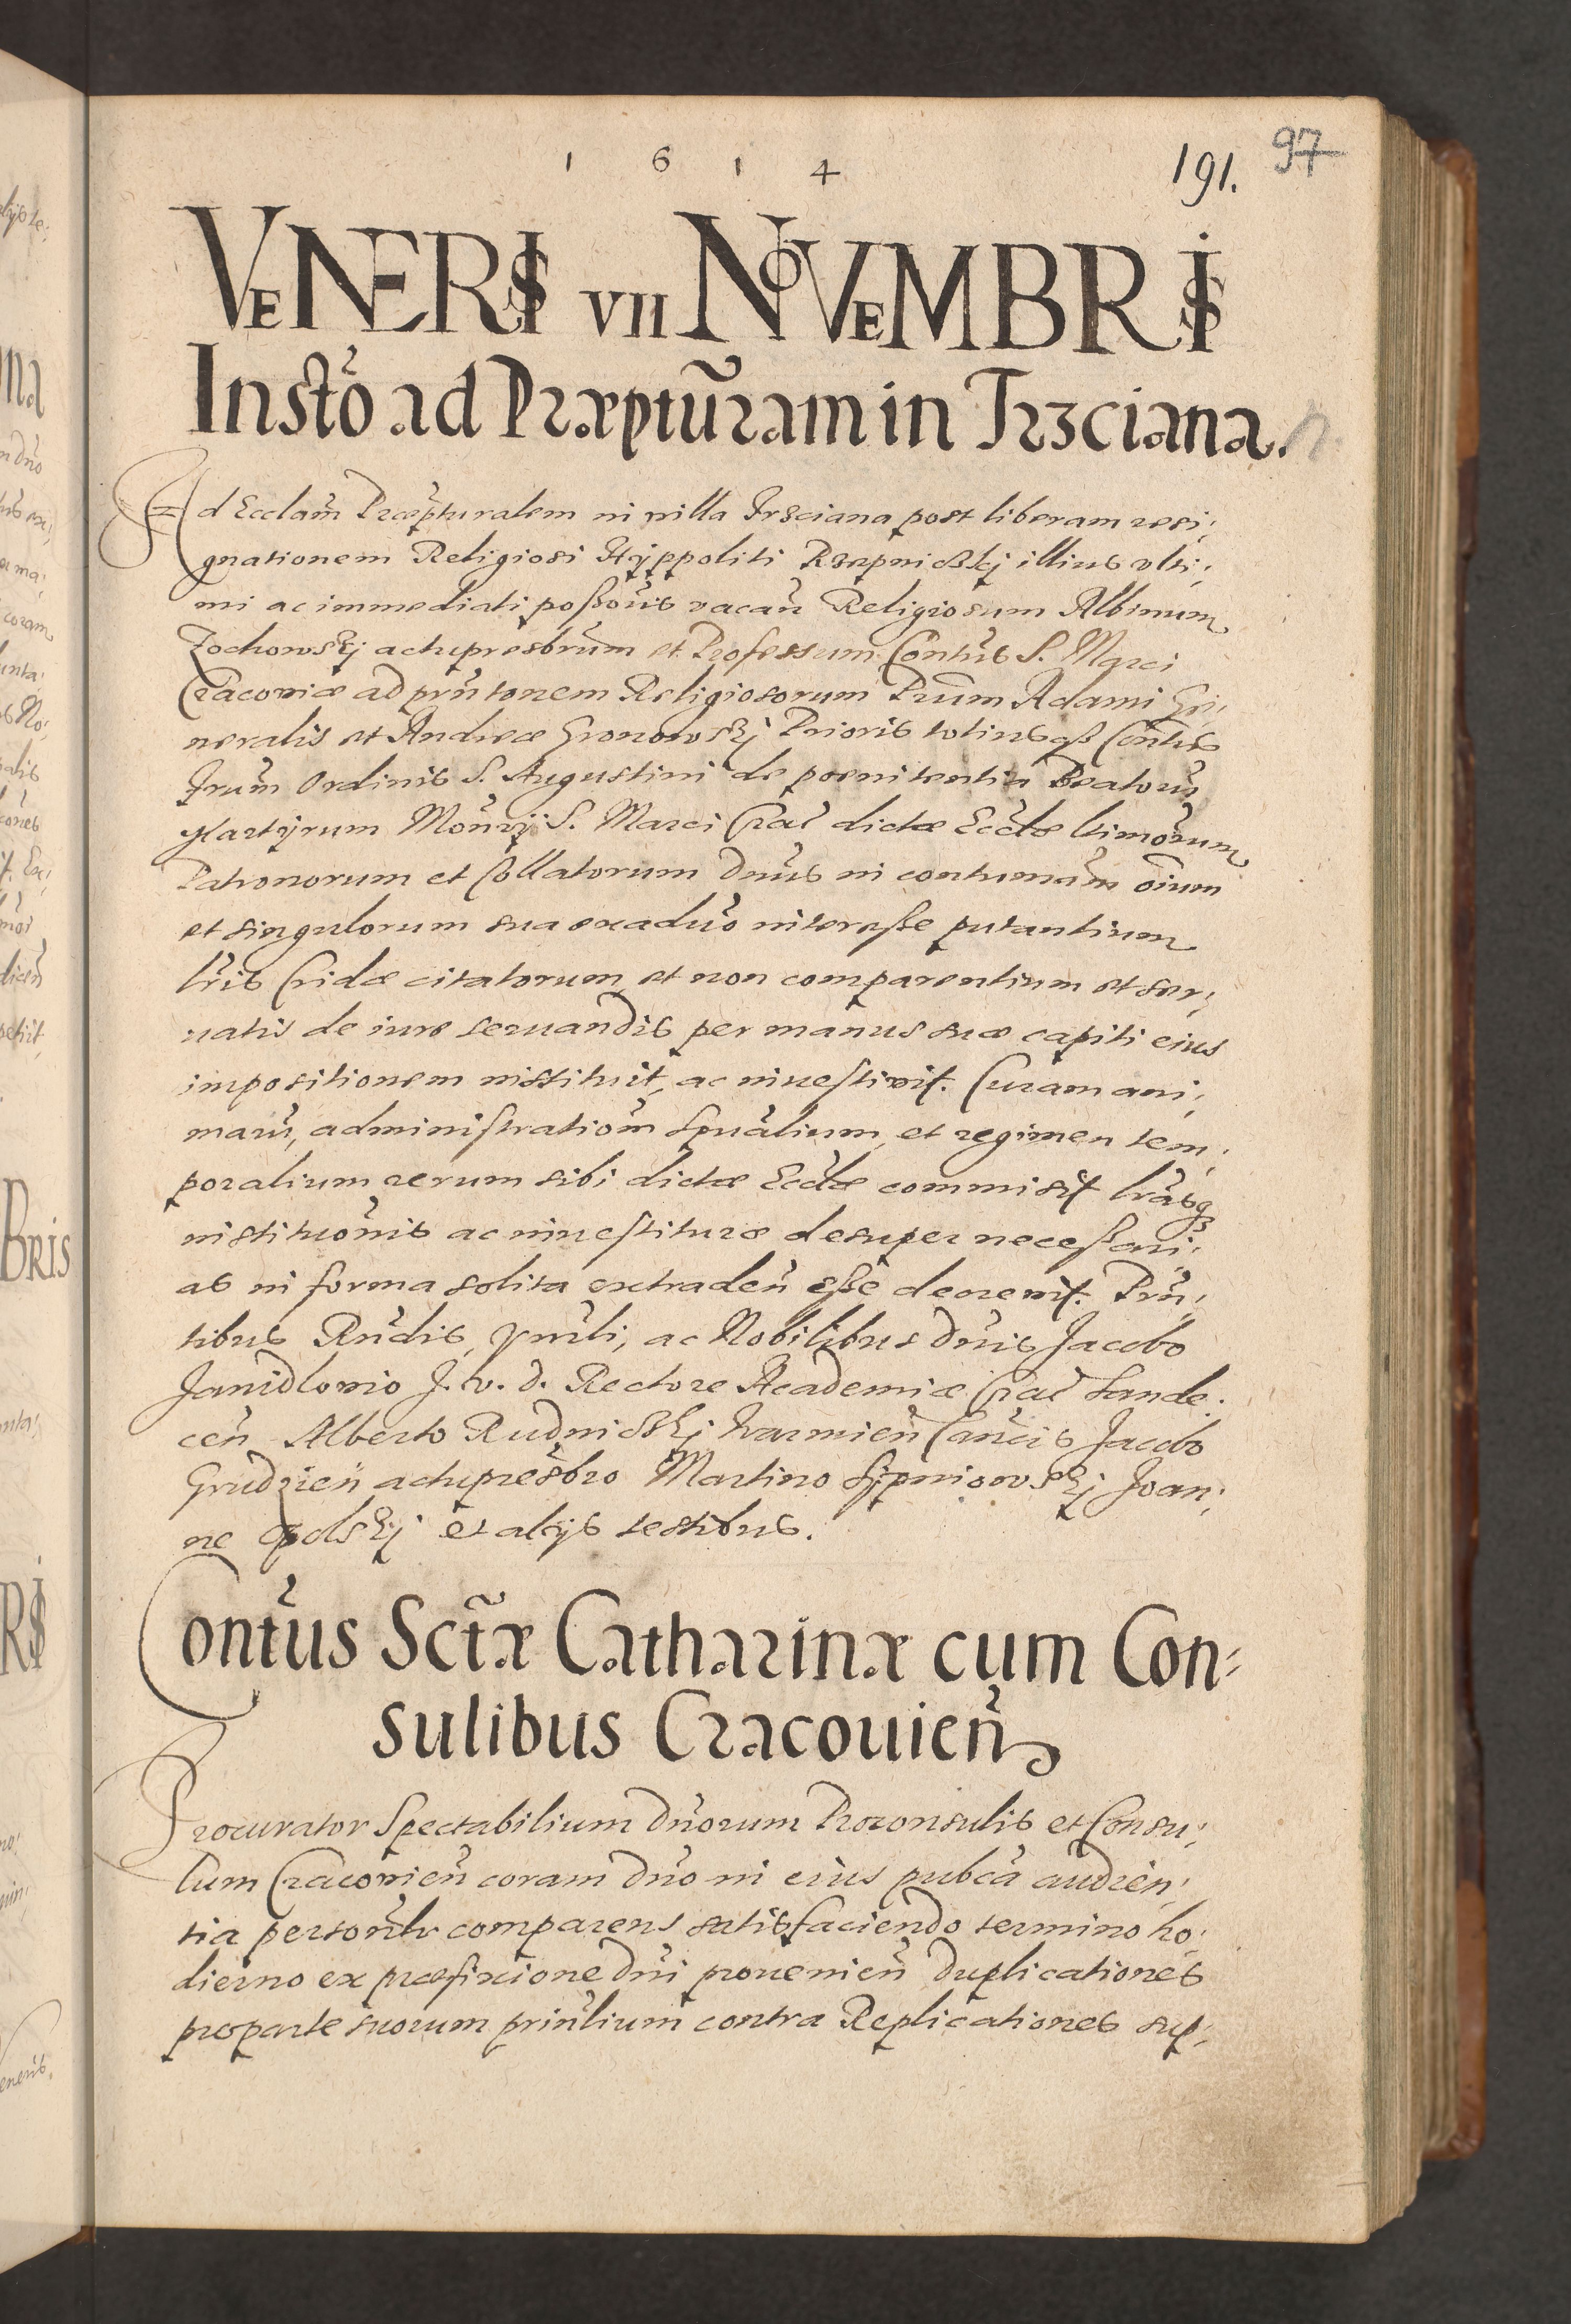 1 6 1 4
191. 97
VENERIS VII NOVEMBRIS
Instõ ad Præptũram in Trzciana.
Ad Ecclam̃ Præp̃turalem in villa Trzciana post liberam resi,
gnationem Religiosi Hyppoliti Rzepnicskÿ illius ulti,
mi ac immediati poßoris̃ vacañ Religiosum Albinum
Zochowskÿ actupresbrũm et Professum Contũs S. Marci
Cracoviæ ad prñtonem Religiosorum Prũm Adami Ge,
neralis et Andreæ Gronowskÿ Prioris totiusqꝫ Contũs
Frũm Ordinis S. Augustini de pœnitentia Beatorũ
Martÿrum Moñrÿ S. Marci Crac̃ dictæ Ecclæ̃ ltimõrum
Patronorum et Collatorum Dñus in contumam̃ oĩum
et singulorum sua exaduõ interesse putantium
lrĩs Cridæ citatorum et non comparentium et ser,
uatis de iure seruandis per manus suæ capiti eius
impositionem instituit, ac inuestiuit. Curam ani,
marũ, administratiom̃ Spuãlium, et regimen tem,
poralium rerum sibi dictæ Ecclæ̃ commisit lrãsqꝫ
institiuõnis ac inuestituræ desuper neceßari,
as in forma solita extradeñ eße decreuit. Prñ,
tibus Rñdis, ac Nobilibus Dñis Jacobo
Janidlouio J. v. d. Rectore Academiæ Crac̃ Sande,
ceñ Alberto Rudnicskÿ Varmieñ Cañcis Jacobo
Grudzień actupresb̃ro Martino Sypniowskÿ Joan,
ne Opolskÿ et alijs testibus.
Contũs Sctæ̃ Catharinæ cum Con=
sulibus Cracouieñ
Procurator Spectabilium Dñorum Proconsulis et Consu,
lum Cracouieñ coram Dño in eius pubcã audien,
tia persoñlr comparens satisfaciendo termino ho,
dierno ex præfixione Dñi prouenieñ duplicationes
pro parte suorum prinlĩum contra Replicationes sup,